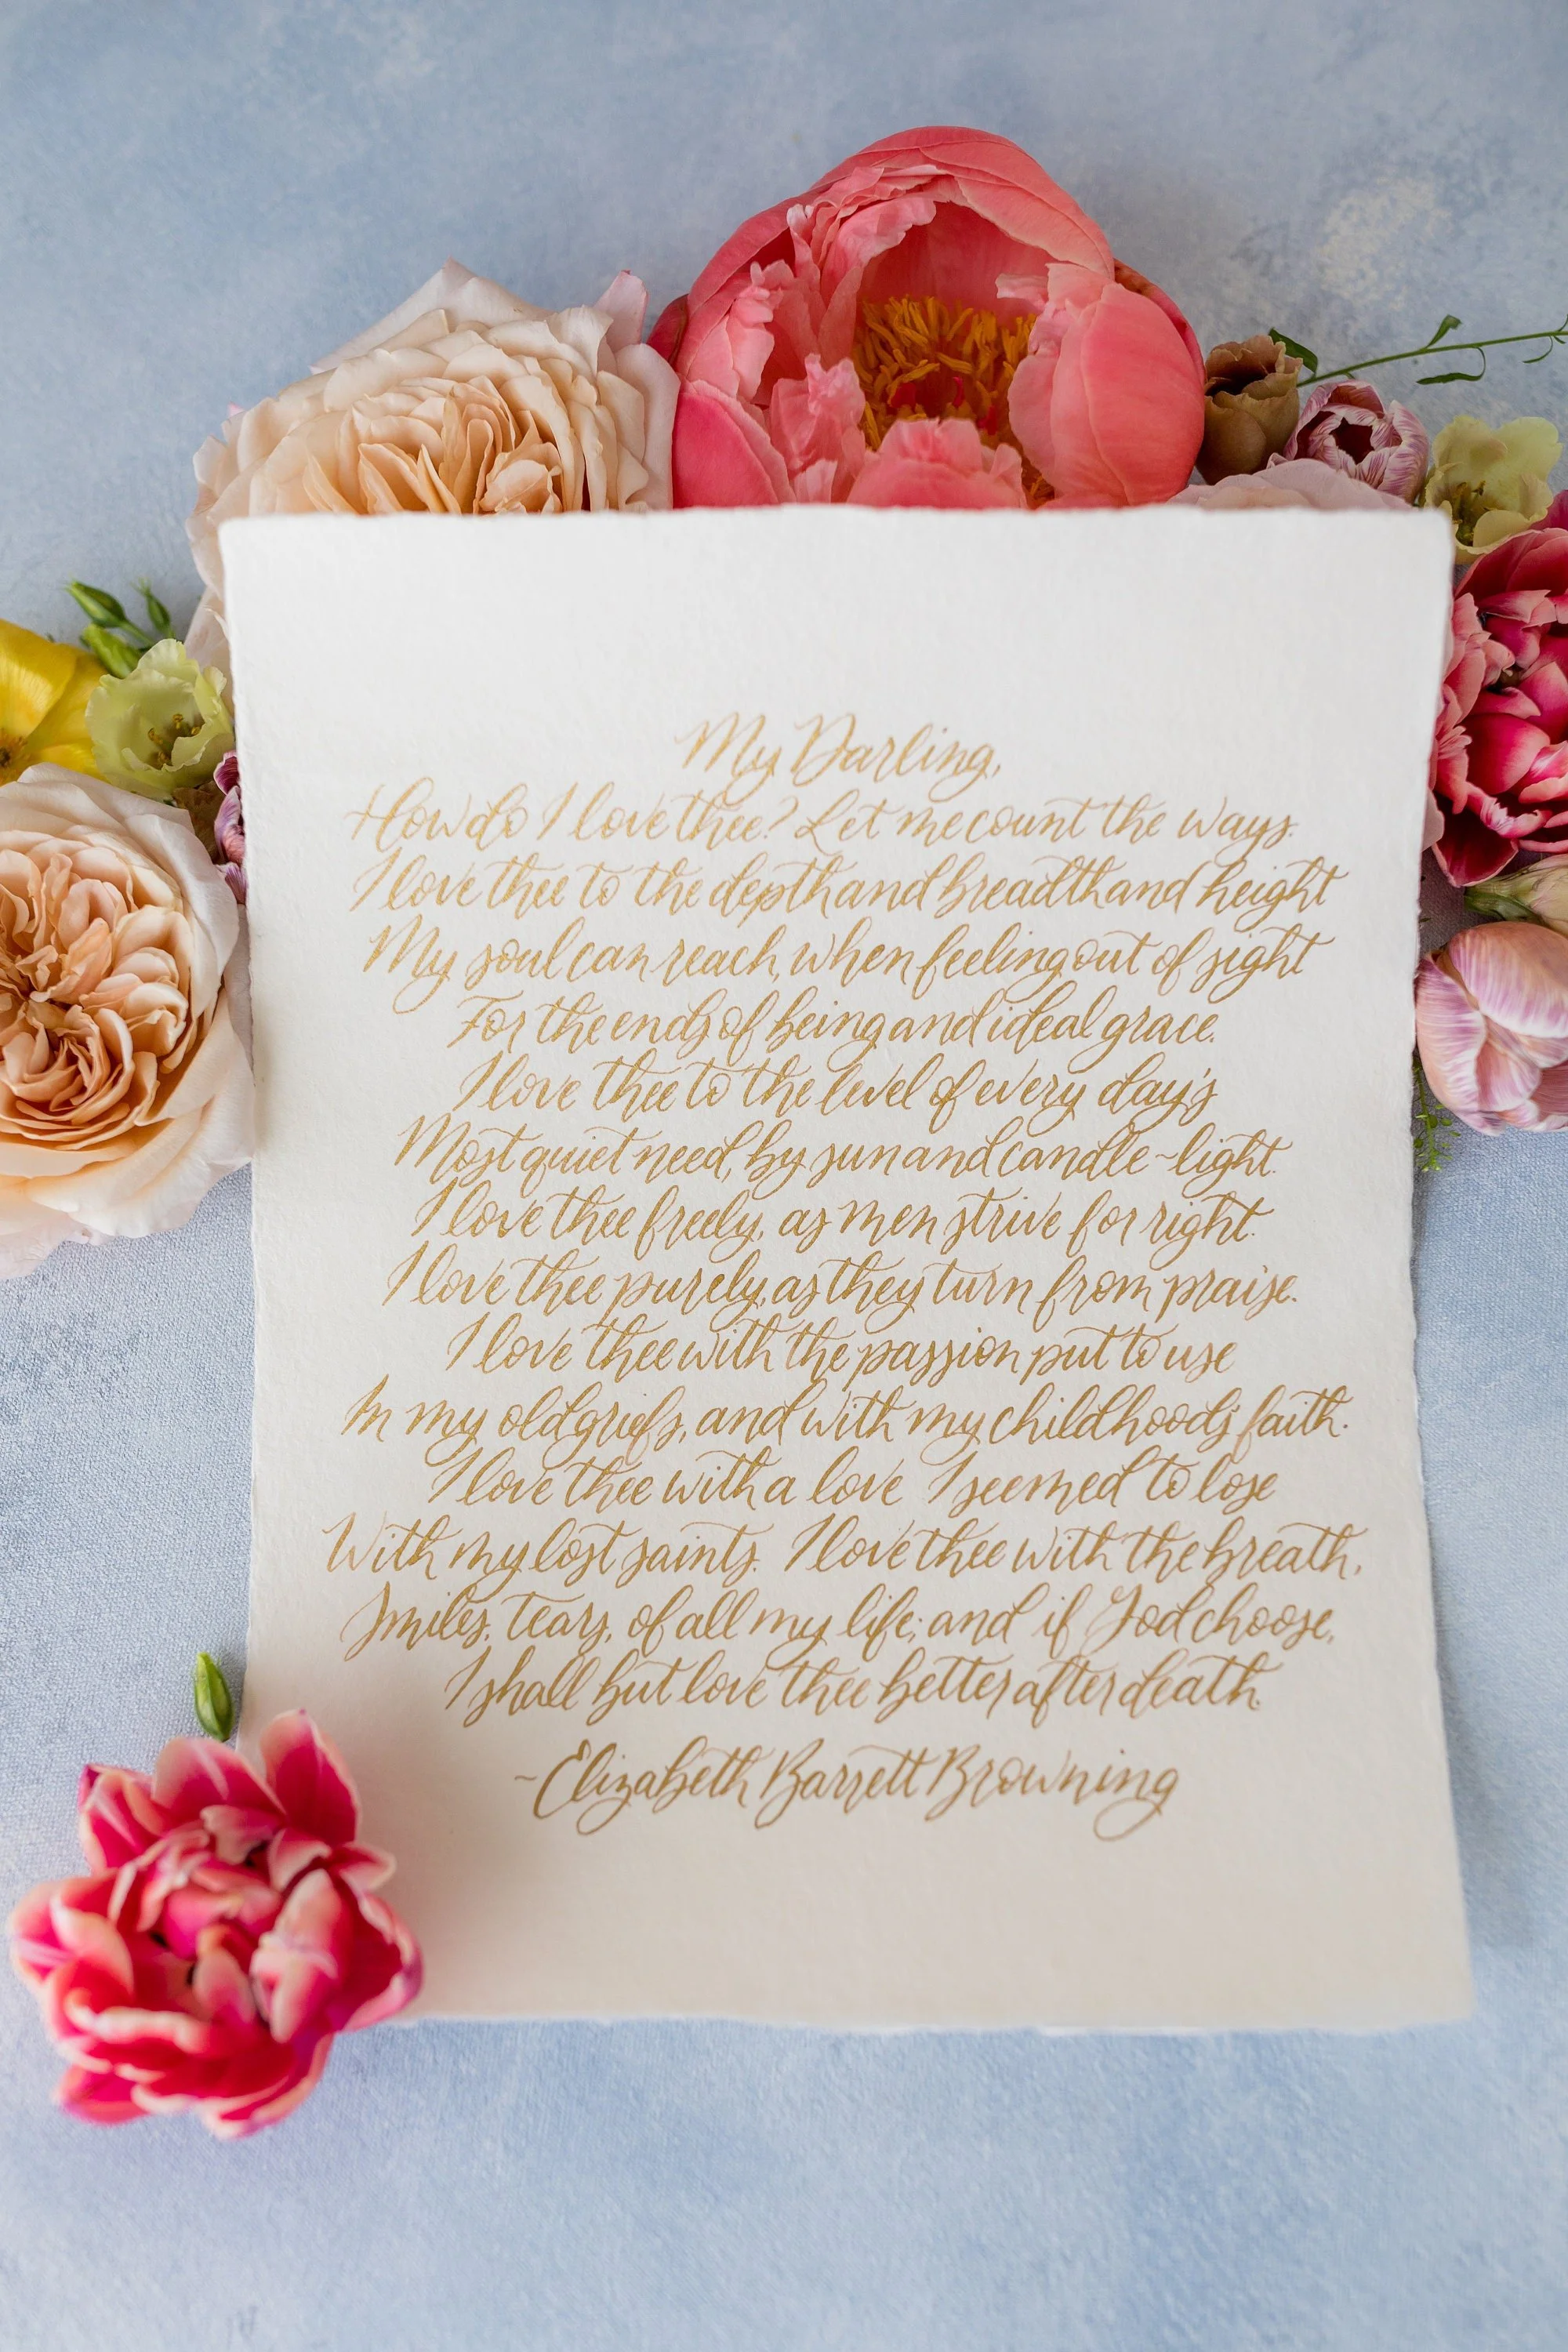 My Darling,
How do I love thee? Let me count the ways.
I love thee to the depth and breadth and height
My soul can reach, when feeling out of sight
For the ends of being and ideal grace.
I love thee to the level of every day's
Most quiet need, by sun and candle-light.
I love thee freely, as men strive for right.
I love thee purely, as they turn from praise.
I love thee with the passion put to use
In my old griefs, and with my childhood's faith.
I love thee with a love I seemed to lose
With my lost saints. I love thee with the breath,
Smiles, tears, of all my life; and if God choose,
I shall but love thee better after death.
~Elizabeth Barrett Browning